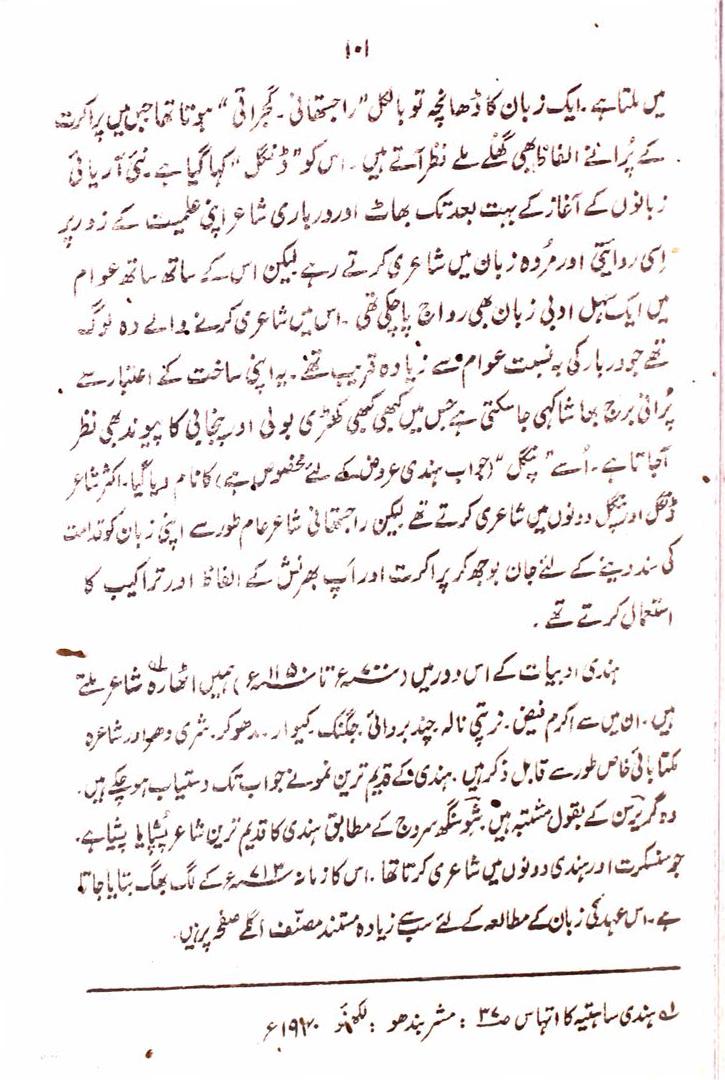 ۱۰۱
میں ملتا ہے۔ ایک زبان کا ڈھانچہ تو بالکل "راجستھانی۔ گجراتی" ہوتا تھا جس میں پراکرت
کے پرانے الفاظ بھی گھلے ملے نظر آتے ہیں۔ اس کو "ڈنگل" کہا گیا ہے۔ نئی آریائی
زبانوں کے آغاز کے بہت بعد تک بھاٹ اور درباری شاعر اپنی علمیت کے زور پر
اِسی روایتی اور مُردہ زبان میں شاعری کرتے رہے لیکن اس کے ساتھ ساتھ عوام
میں ایک سہل ادبی زبان بھی رواج پا چکی تھی۔ اس میں شاعری کرنے والے وہ لوگ
تھے جو دربار کی بہ نسبت عوام سے زیادہ قریب تھے۔ یہ اپنی ساخت کے اعتبار سے
پُرانی برج بھاشا کہی جا سکتی ہے جس میں کبھی کبھی کھڑی بولی اور پنجابی کا پیوند بھی نظر
آجاتا ہے۔ اُسے "پنگل" (جو اب ہندی عروض کے لئے مخصوص ہے) کا نام دیا گیا۔ اکثر شاعر
ڈنگل اور پنگل دونوں میں شاعری کرتے تھے لیکن راجستھانی شاعر عام طور سے اپنی زبان کو قدامت
کی سند دینے کے لئے جان بوجھ کر پراکرت اور اَپ بھرنش کے الفاظ اور تراکیب کا
استعمال کرتے تھے۔
ہندی ادبیات کے اس دور میں (سنہ ۷۰۰ء تا سنہ ۱۱۵۰ء) ہمیں اٹھارہ لہ شاعر ملتے
ہیں۔ ان میں سے اکرم فیض۔ نرپتی نالہ چند بردائی۔ جگنک کیوار۔ مدھوکر۔ شری دھر اور شاعرہ
مکتا بائی خاص طور سے قابل ذکر ہیں۔ ہندی کے قدیم ترین نمونے جو اب تک دستیاب ہو چکے ہیں۔
وہ گریرسن کے بقول مشتبہ ہیں۔ شوسنگھ سروج کے مطابق ہندی کا قدیم ترین شاعر پُشپا یا پشیا ہے۔
جو سنسکرت اور ہندی دونوں میں شاعری کرتا تھا۔ اس کا زمانہ سنہ ۷۱۳ء کے لگ بھگ بتایا جاتا
ہے۔ اس عہد کی زبان کے مطالعہ کے لئے سب سے زیادہ مستند مصنّف اگلے صفحہ پر ہیں۔
لہ ہندی ساہتیہ کا اتہاس ص ۳۷ : مشر بندھو : لکھنؤ ۱۹۲۰ء